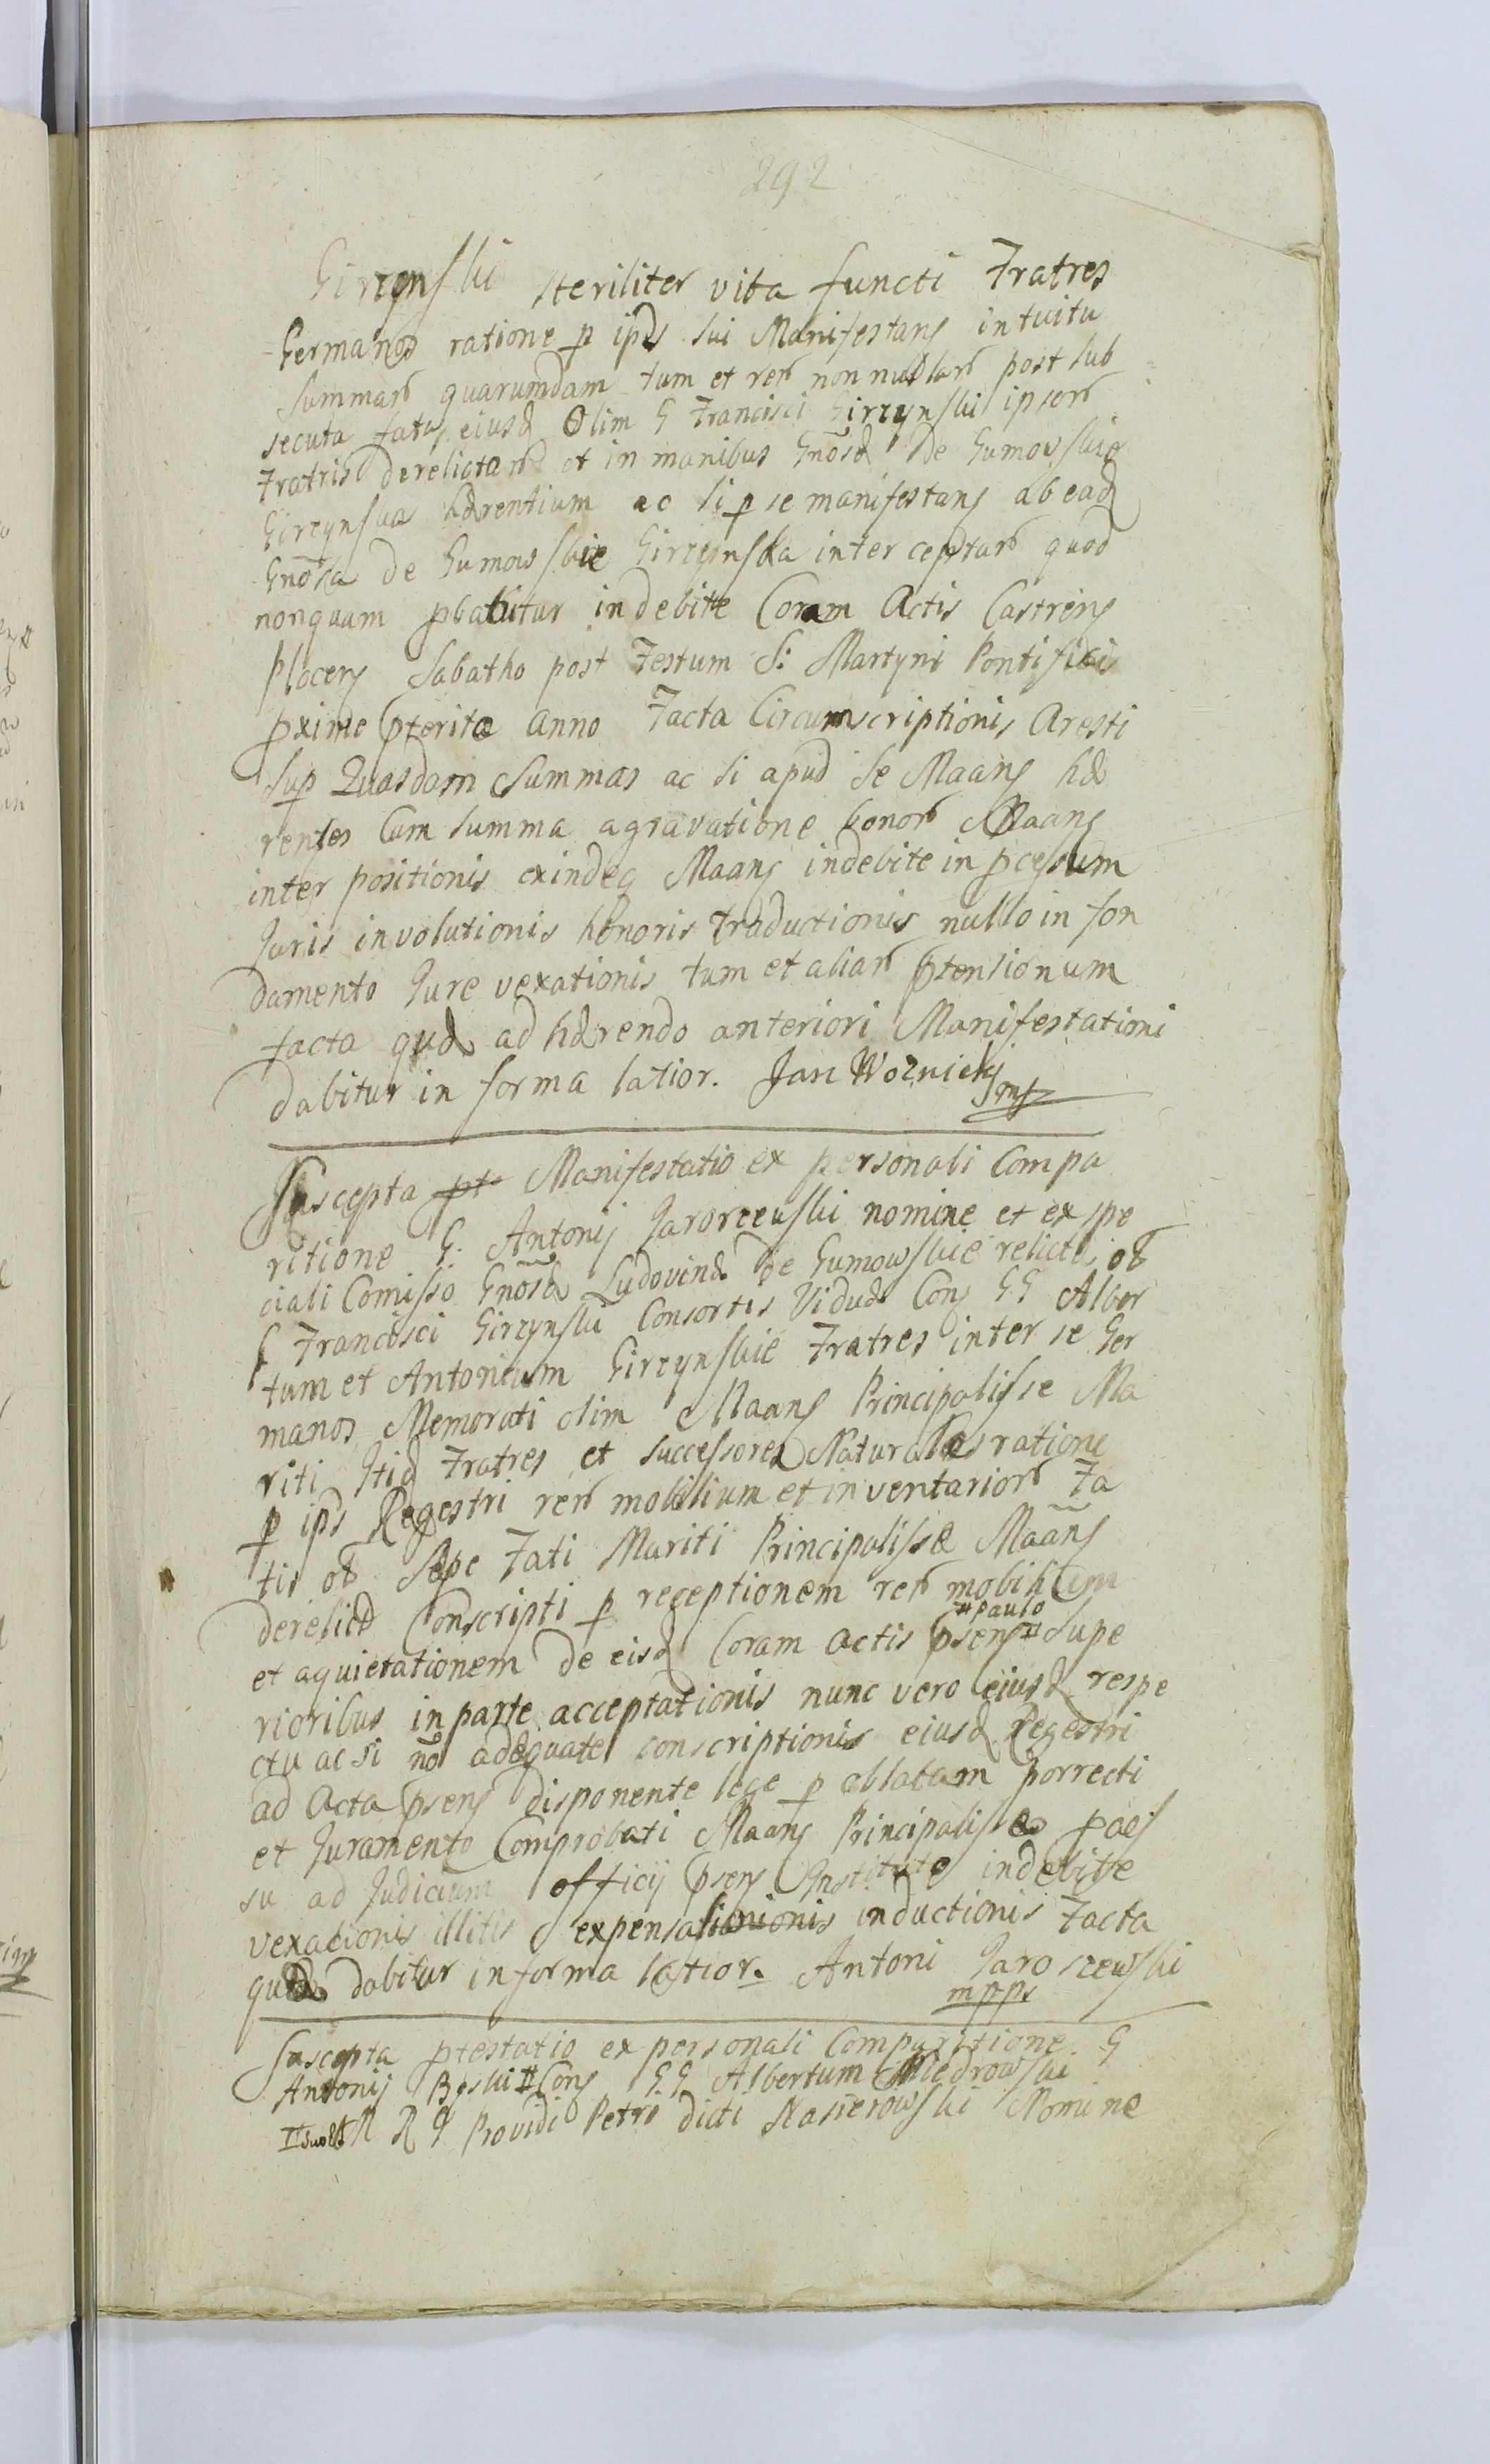 292
Girzynski steriliter vita functi Fratres
Germanos ratione p ip̃s sui Manifestanṣ intuitu
Summarũ quarumdam tum et rerũ non nullarũ post sub
secuta fata eiusd Olim G Francisci Girzynski ipsorũ
Fratris derelictarũ et in manibus Gnõsæ de Gumowskie
Girzynska hærentium ac si p se manifestans ab ead
Gnõsa de Gumowskie Girzynska interceptarũ quod
nonquam pbabitur indebitte Coram Actis Castrens
Plocens Sabatho post Festum S: Martyni Pontificis
pxime pterito anno Facta Circumscriptionis Aresti
sup Quasdam Summas ac si apud se Maans hæ
rentes Cum summa agravatione bonorũ Maans
inter positionis exindeq Maans indebite in pcessum
Juris involutionis honoris traductionis nullo in fon
damento Jure vexationis tum et aliarũ ptensionum
facta quæ ad hærendo anteriori Manifestationi
dabitur in forma latior. Jan Woznicki
mp
Suscepta pta Manifestatio ex personali Compa
ritione G: Antonij Jaroszewski nomine et ex spe
ciali Comisso Gnõsæ Ludovinæ de Gumowskie relictæ ol
G Francisci Girzynski Consortis Viduæ Cons GG Alber
tum et Antonium Girzynskie Fratres inter se Ger
manos Memorati olim Maans Principalisse Ma
riti Itid Fratres et successores Naturales ratione
p ips Regestri rerũ mobilium et inventariorũ Fa
tis ol Sepe Fati Mariti Principalissæ Maãns
derelictæ Conscripti p receptionem rerũ mobilium
et aquietationem de eisd Coram Actis psens # paulo Supe
rioribus in parte acceptationis nunc vero eiusd respe
ctu ac si nõ adequate conscriptionis eiusd Regestri
ad Acta psens disponente lege p oblatam porrecti
et Juramento Comprobati Maans Principalissæ paes
su ad Judicium officij psens Institutæ indebitte
vexationis illitis expensationis inductionis Facta
quæ dabitur in forma latior. Antoni Jaroszewski
mpps
Suscepta ptestatio ex personali Comparitione G
Antonij Bęski # Cons GG Albertum Mledrowski
R R q Providi Petri dicti Nasierowski Nomine